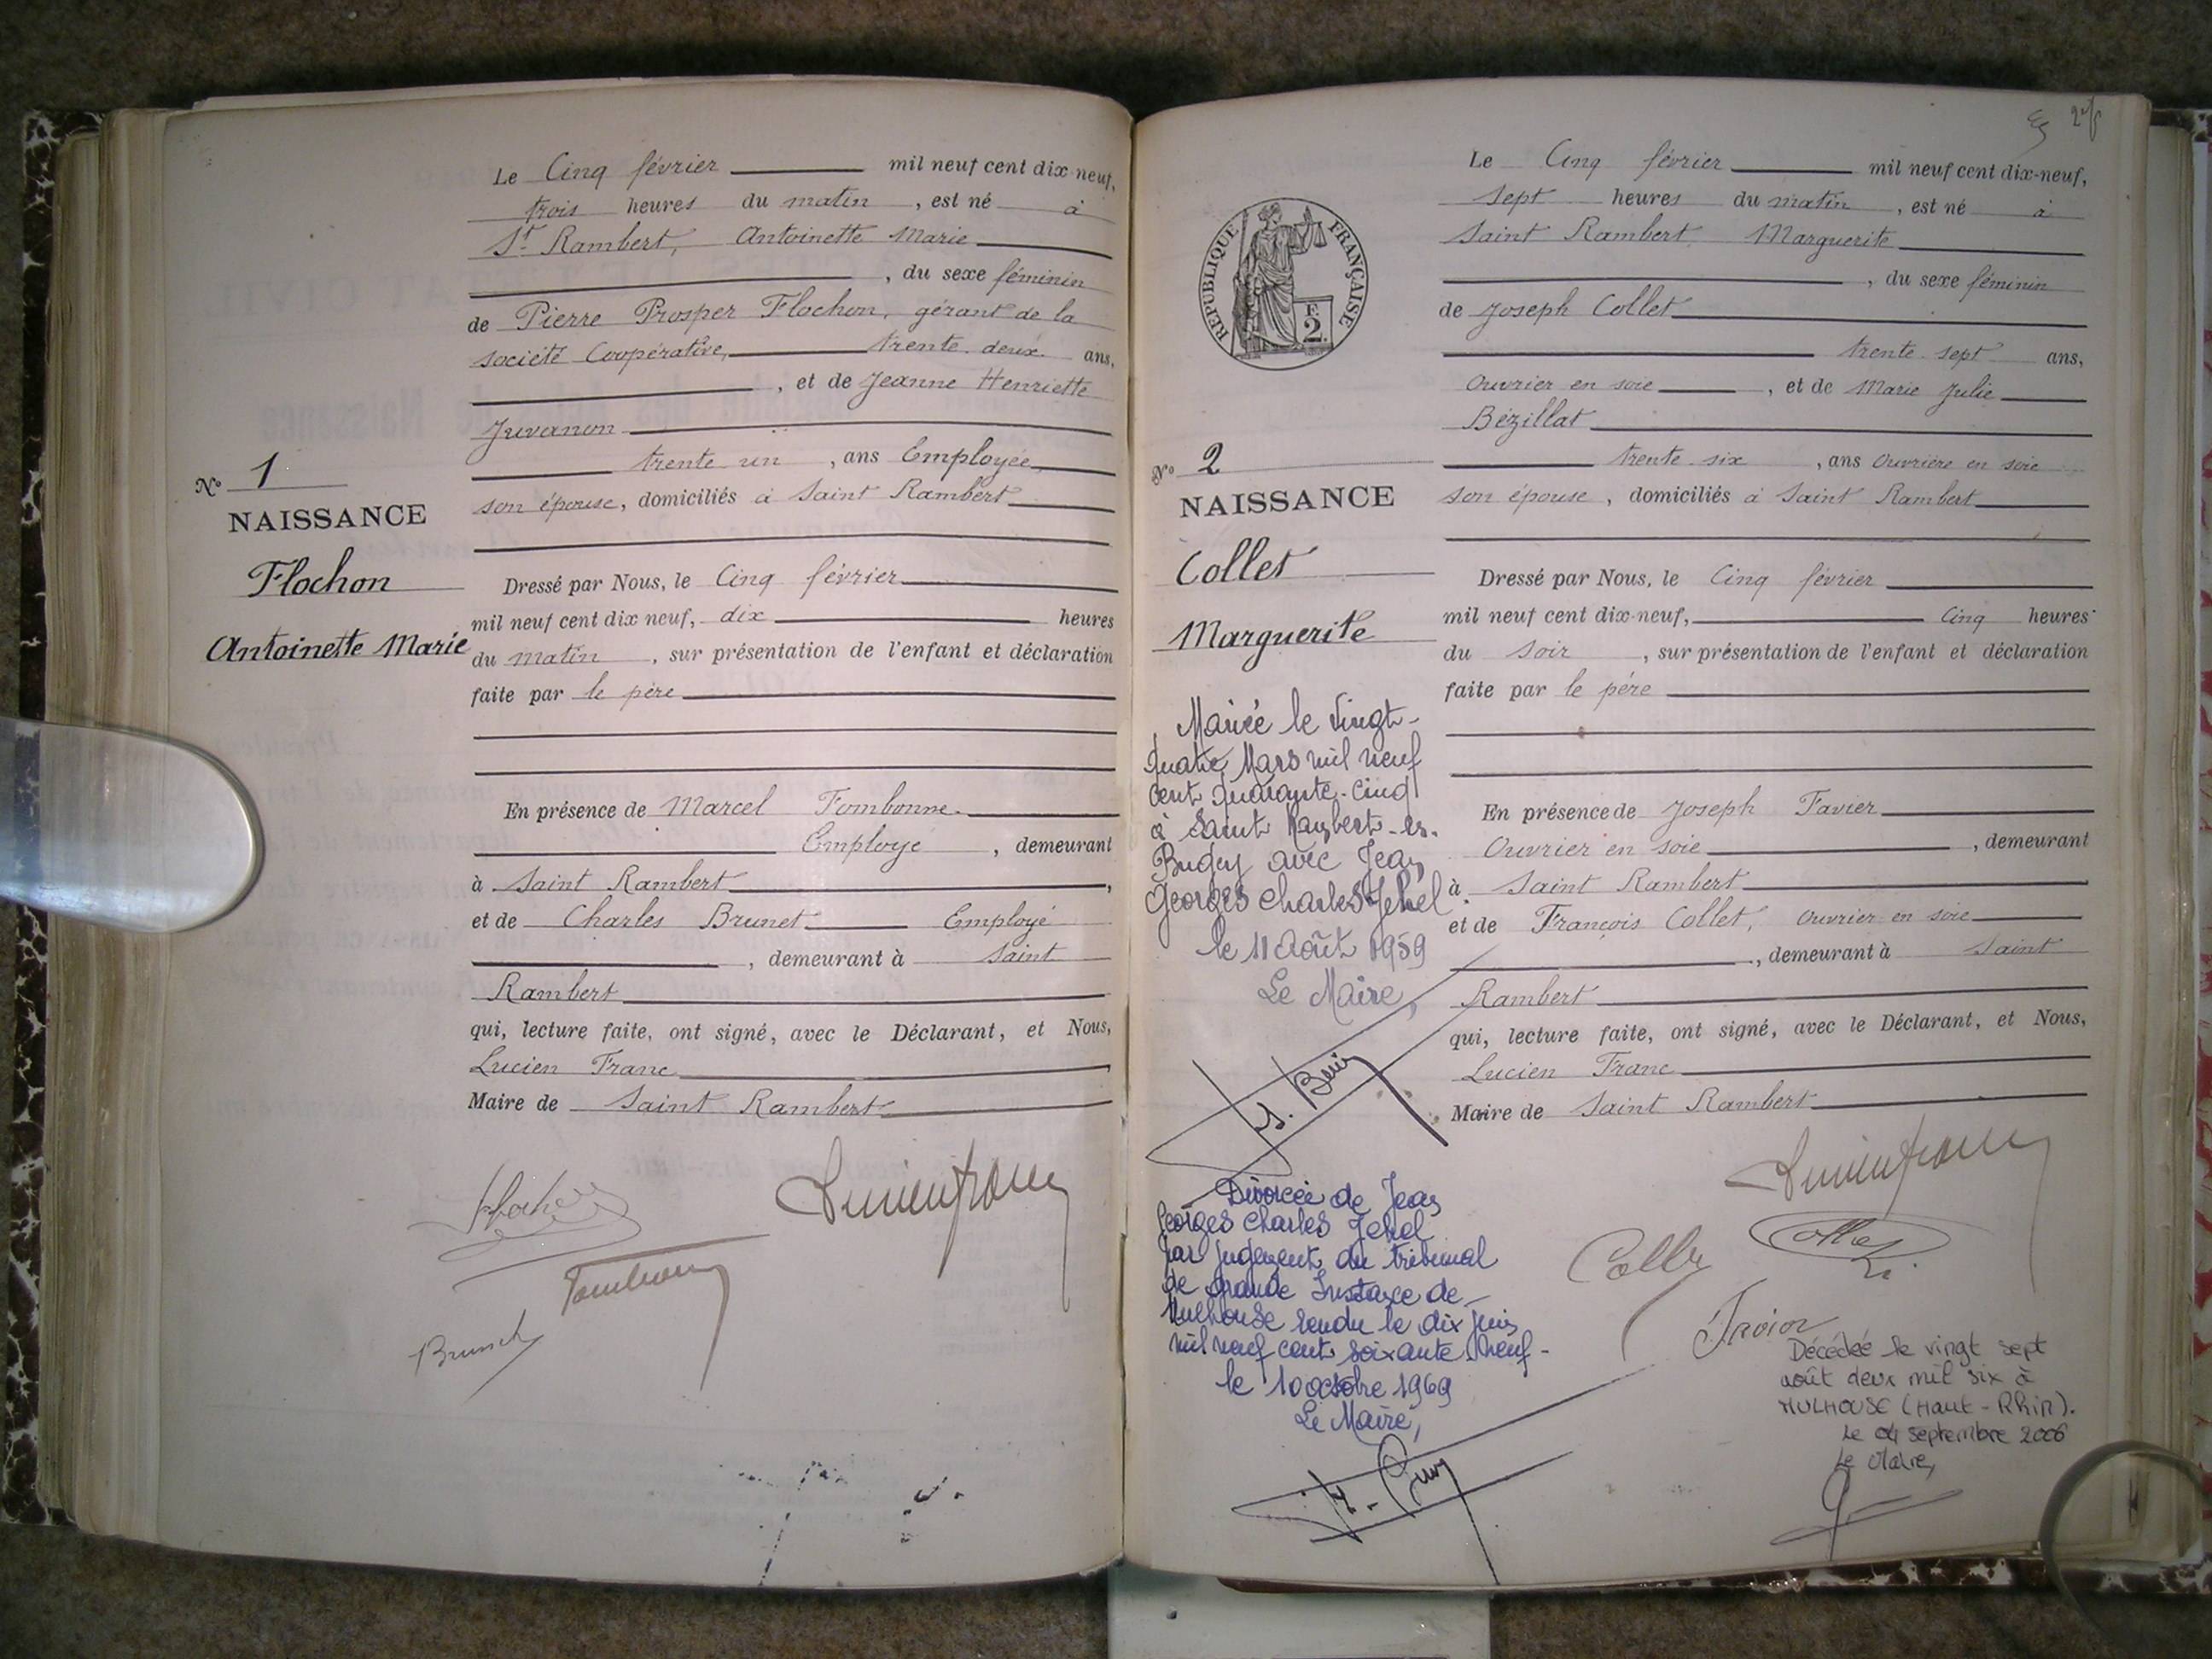 Le Cinq février mil neuf cent dix neuf,
trois heures du matin, est né à
St Rambert, Antoinette Marie
, du sexe féminin
de Pierre Prosper Flochon, gérant de la
société Coopérative, trente deux ans,
, et de Jeanne Henriette
Juvanon
trente un, ans Employée
son épouse, domiciliés à Saint Rambert
No 1
NAISSANCE
Flochon
Antoinette Marie
Dressé par Nous, le Cinq février
mil neuf cent dix neuf, dix heures
du matin, sur présentation de l'enfant et déclaration
faite par le père
En présence de Marcel Fombonne
Employé, demeurant
à Saint Rambert,
et de Charles Brunet Employé
, demeurant à Saint
Rambert
qui, lecture faite, ont signé, avec le Déclarant, et Nous,
Lucien Franc
Maire de Saint Rambert
Lucien Franc
RÉPUBLIQUE FRANÇAISE
E.
2.
Le Cinq février mil neuf cent dix-neuf,
sept heures du matin, est né à
Saint Rambert Marguerite
, du sexe féminin
de Joseph Collet
trente sept ans,
Ouvrier en soie, et de Marie Julie
Bézillat
trente six, ans ouvrière en soie
son épouse, domiciliés à Saint Rambert
No 2
NAISSANCE
Collet
Marguerite
Dressé par Nous, le Cinq février
mil neuf cent dix-neuf, Cinq heures
du soir, sur présentation de l'enfant et déclaration
faite par le père
En présence de Joseph Favier
Ouvrier en soie, demeurant
à Saint Rambert
et de François Collet, ouvrier en soie
, demeurant à Saint
Rambert
qui, lecture faite, ont signé, avec le Déclarant, et Nous,
Lucien Franc
Maire de Saint Rambert
Mariée le vingt-
quatre Mars mil neuf
cent quarante-cinq
à Saint Rambert-en-
Bugey avec Jean
Georges Charles Jehel
le 11 Août 1959
Le Maire,
Divorcée de Jean
Georges Charles Jehel
par jugement du tribunal
de Grande Instance de
Mulhouse rendu le dix juin
mil neuf cent soixante neuf-
le 10 octobre 1969
Le Maire,
Lucien Franc
Collet
Collet
Favier
Décédée le vingt sept
août deux mil six à
MULHOUSE (Haut-Rhin).
Le 04 septembre 2006
Le Maire,